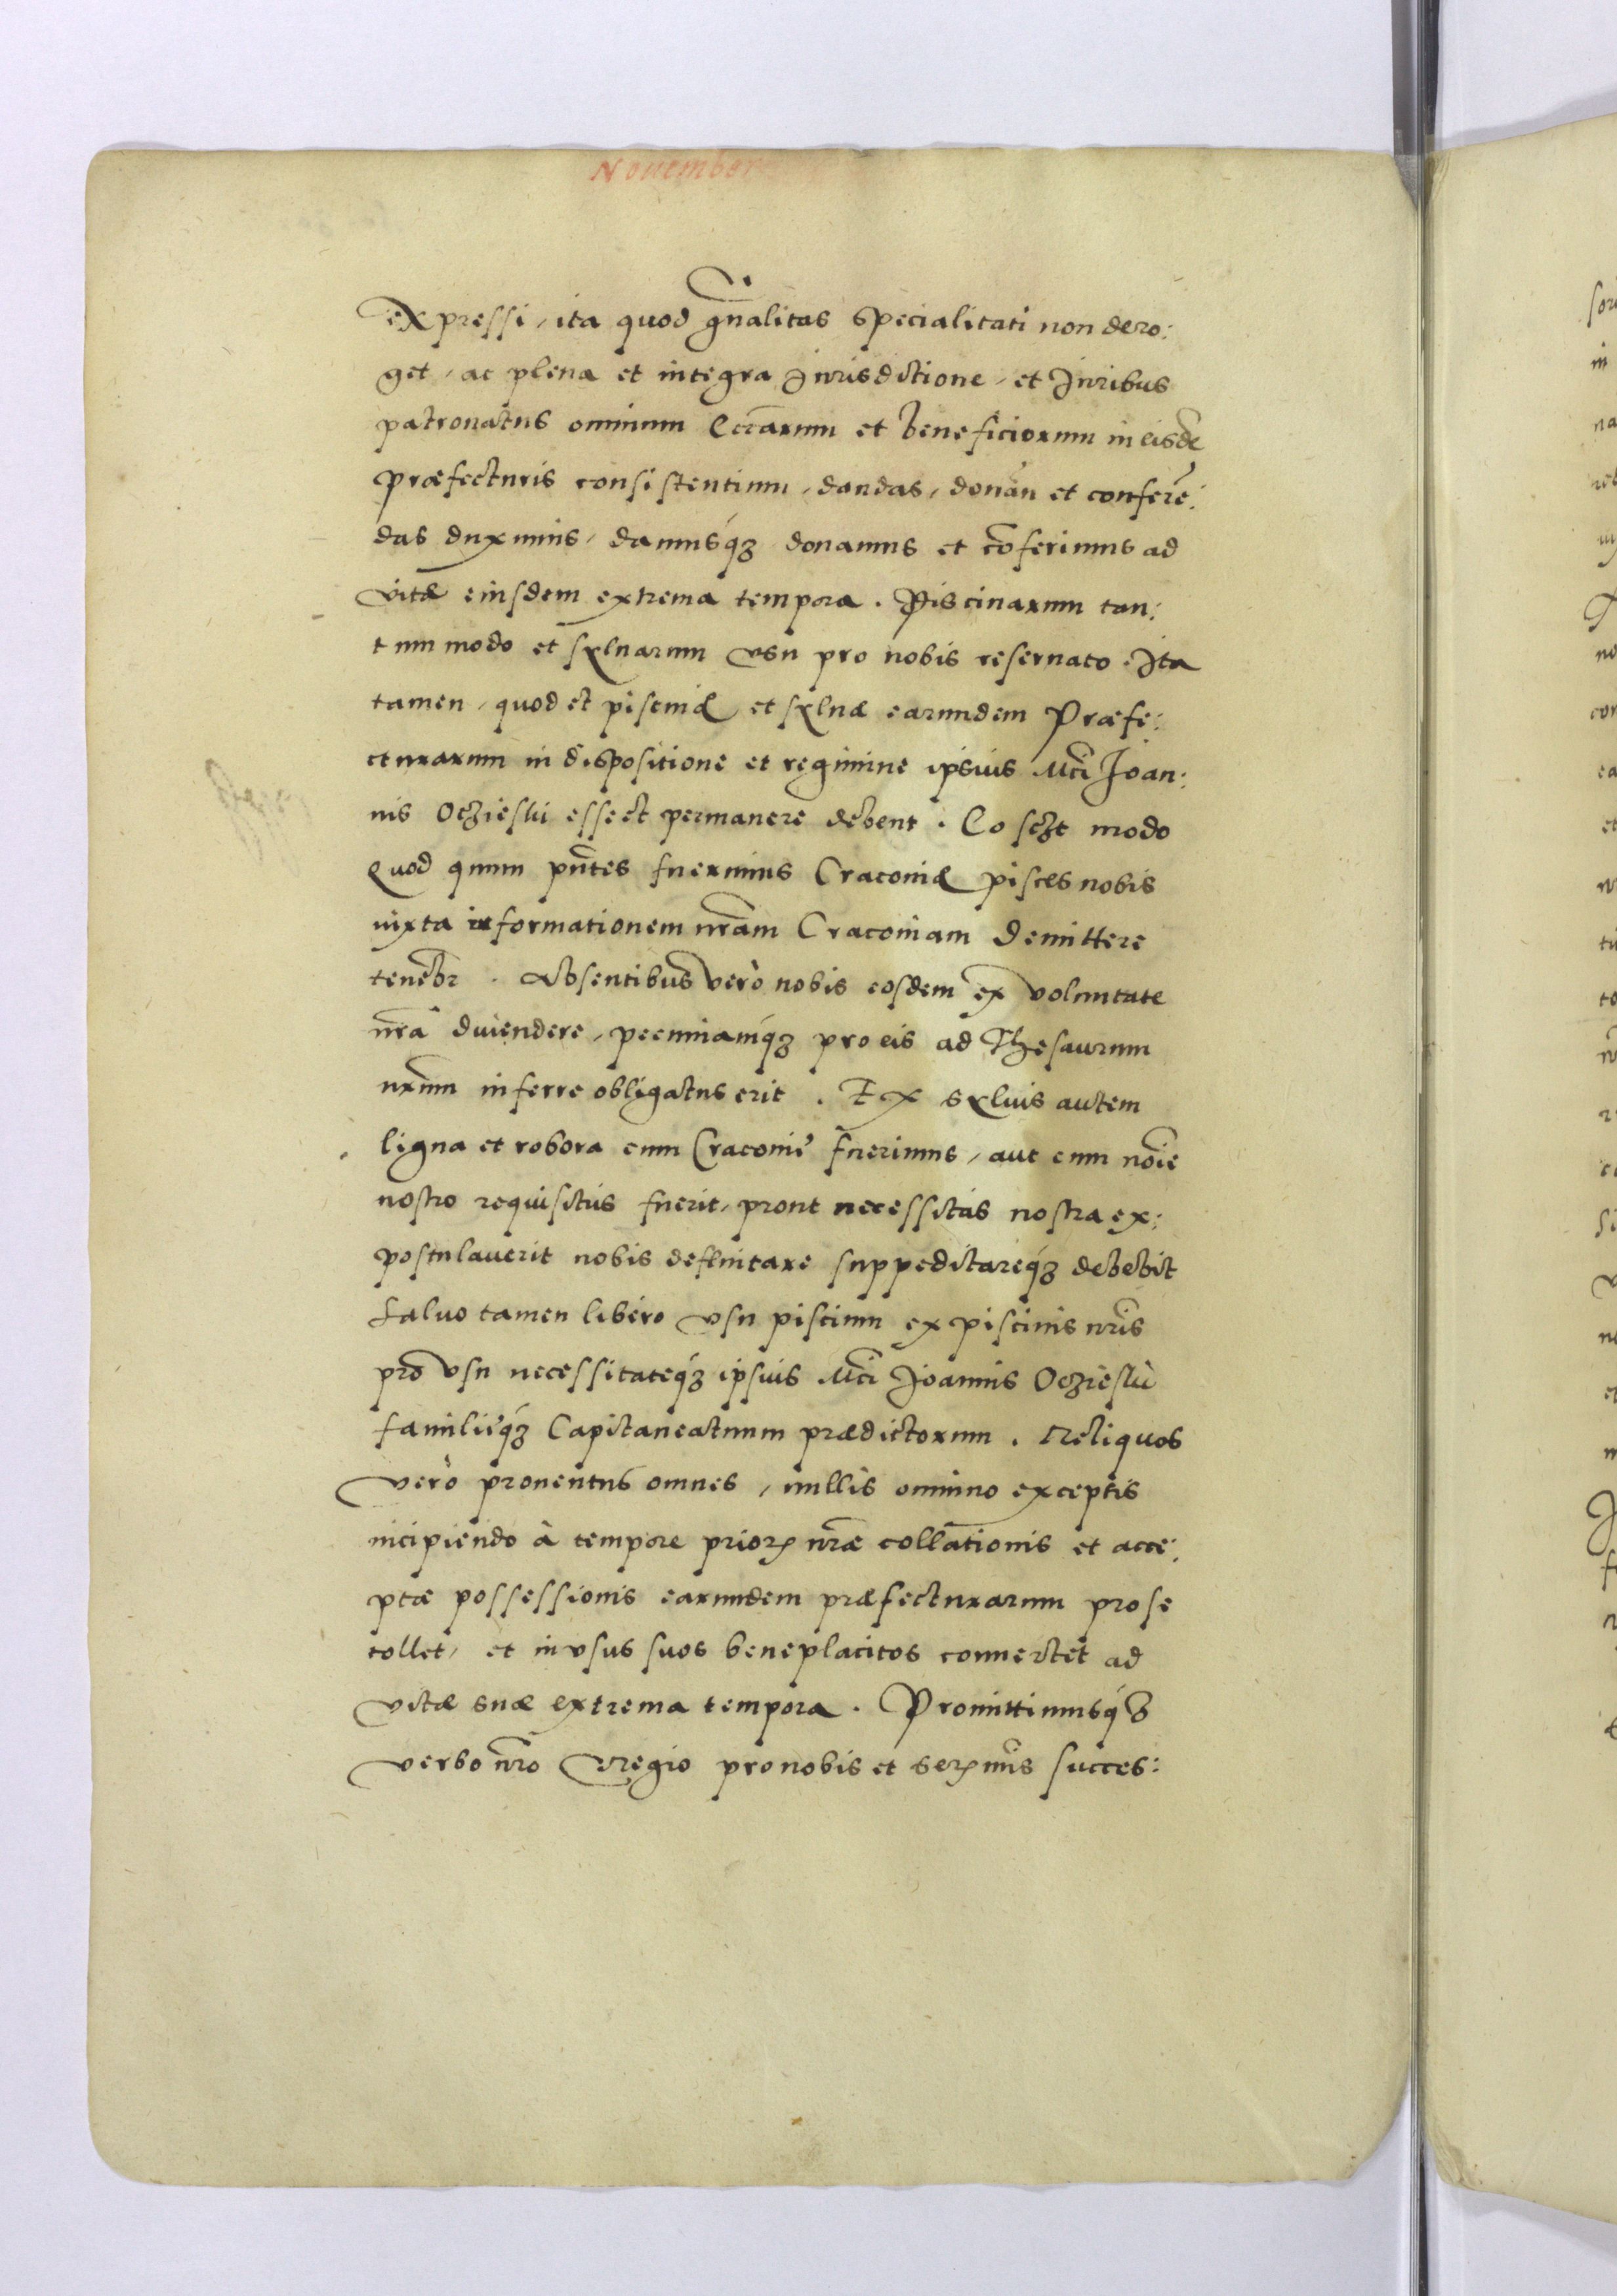 November
expressi, ita quod gnālitas specialitati non dero:
get, ac plena et integra Jurisdictione, et Juribus
patronatus omnium Ecciārum et beneficiorum in eisdē
præfecturis consistentium, dandas, donān et conferē:
das duximus, damusq́ꝫ donamus et cōferimus ad
vitæ eiusdem extrema tempora. Piscinarum tan:
tummodo et sylvarum vsu pro nobis reservato. Ita
tamen, quod et piscinæ et sylvæ earundem Præfe:
cturarum in dispositione et regimine ipsius Mci Joan:
nis Oczieski esse et permanere debent. Eo sczt modo
Quod quum pn̄tes fuerimus Cracoviæ pisces nobis
iuxta informationem nr̄am Cracoviam demittere
tenebr̄. Absentibus verò nobis eosdem ex voluntate
nr̄a divendere, pecuniamq́ꝫ pro eis ad Thesaurum
nr̄um inferre obligatus erit. Ex sylvis autem
ligna et robora cum Cracovię fuerimus, aut cum noīe
nostro requisitus fuerit, prout necessitas nostra ex:
postulaverit nobis defluitare suppeditareq́ꝫ debebit
salvo tamen libero vsu piscium ex piscinis nr̄is
pro vsu necessitateq́ꝫ ipsius Mci Joannis Oczieski
familięq́ꝫ Capitaneatuum prædictorum. Reliquos
verò proventus omnes, nullis omnino exceptis
incipiendo à tempore prioris nr̄æ collationis et acce:
ptæ possessionis earundem præfecturarum pro se
tollet, et in vsus suos beneplacitos convertet ad
vitæ suæ extrema tempora. Promittimusq́ꝫ
verbo nr̄o Regio pro nobis et Serᵐⁱˢ succes: